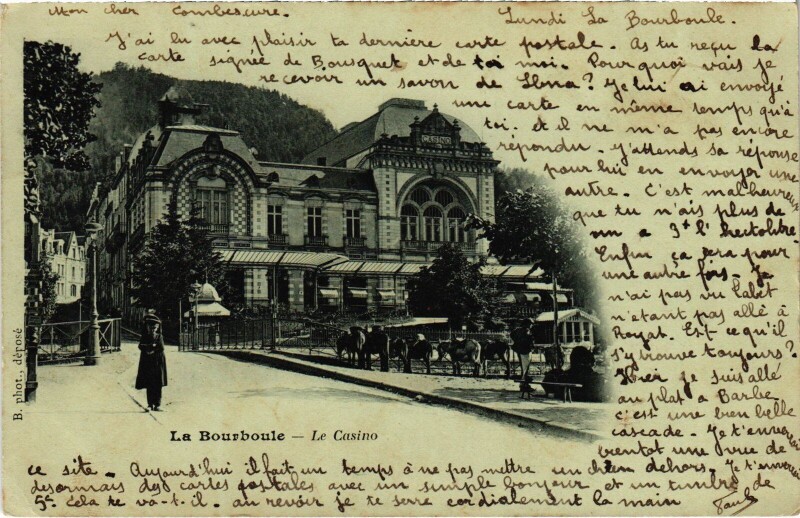 Mon cher Combescure. Lundi La Bourboule.
J'ai lu avec plaisir ta dernière carte postale. As tu reçu la
carte signée de Bousquet et de toi moi. Pourquoi vais je
recevoir un savon de Ibna? Je lui ai envoyé
une carte en même temps qu'à
toi. et il ne m'a pas encore
répondu. J'attends sa réponse
pour lui en envoyer une
autre. C'est malheureux
que tu n'ais plus de
vin a 3f l'hectolitre.
Enfin ça sera pour
une autre fois. Je
n'ai pas vu Labet
n'étant pas allé à
Royat. Est ce qu'il
s'y trouve toujours?
Hier je suis allé
au plat à Barbe
c'est une bien belle
cascade. Je t'enverrai
bientot une vue de
ce site. Aujourd'hui il fait un temps à ne pas mettre un chien dehors. Je t'enverrai
desormais des cartes postales avec un simple bonjour et un timbre de
5c. cela te va-t-il. au revoir je te serre cordialement la main
Paul
CASINO
B. phot., déposé
La Bourboule — Le Casino